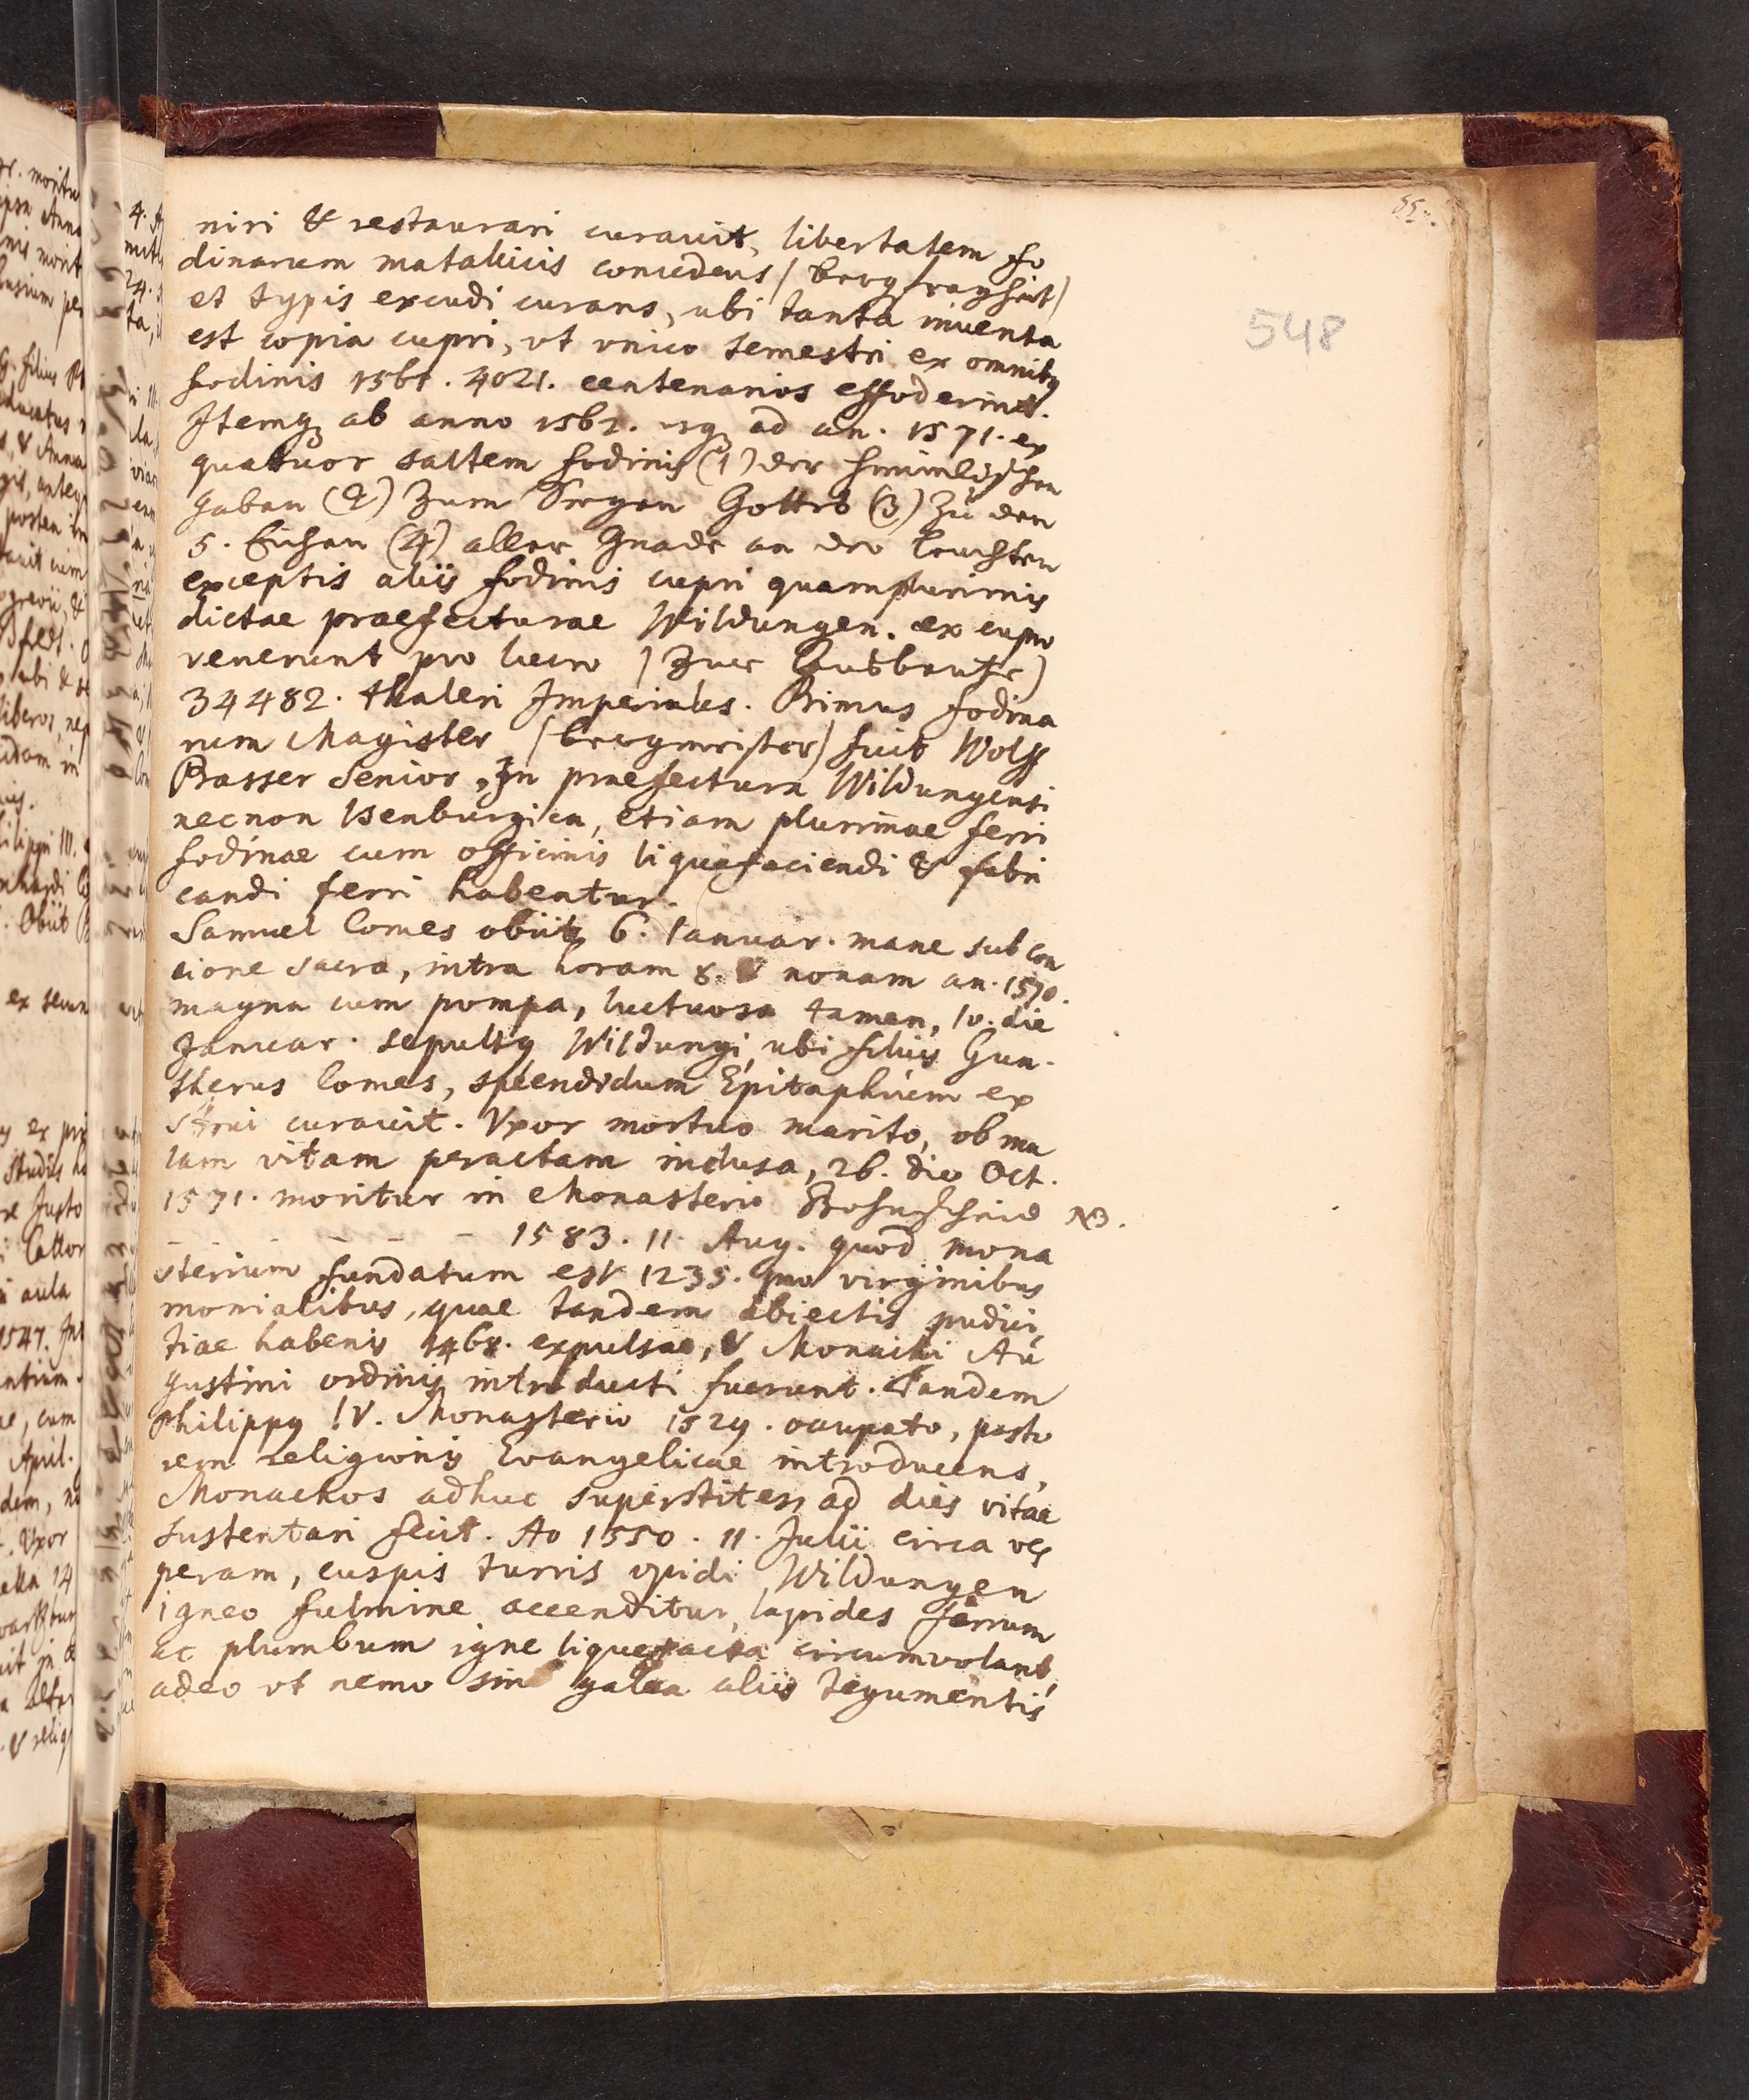 niri & restaurari curavit, libertatem fo
dinarum matallicis concedens /bergfrayheit/
et typis excudi curans, ubi tanta inventa
est copia cupri, vt vnico semestri ex omnibq
fodinis 1561. 4021. centenarios effoderint.
Itemq ab anno 1562. usq ad an. 1571. ex
quatuor saltem fodinis (1) der himmlischen
gaben (2) zum Segen Gottes (3) Zu den
5. Eichen (4) aller Gnade an der Leuchten
exceptis aliis fodinis cupri quamplurimis
dictae praefecturae Wildungen. ex cupro
venerunt pro lucro / zuer Ausbeuthe)
34482. thaleri Imperiales. Primus fodina
rum Magister /bergmeister/ fuit Wolff
Basser Senior, In praefectura Wildungensi
necnon Isenburgica, etiam plurimae ferri
fodinae cum officinis liquefaciendi & fabri
candi ferri habentur.
Samuel Comes obiit 6. Ianuar. mane sub con
cione sacra, intra horam 8. & nonam an. 1570.
magna cum pompa, luctuosa tamen, 10. die
Januar. sepultq Wildungi, ubi filius Gun-
therus Comes, splendidum Epitaphium ex
strui curavit. Vxor mortuo marito, ob ma
lam vitam peractam inclusa, 26. die Oct.
1571. moritur in Monasterio NB.
- - - - - - 1583. 11. Aug. quod mona
sterium fundatum est 1235. pro virginibus
monialibus, quae tandem abiectis pudici,
tiae habenis 1468. expulsae, & Monachi Au
gustini ordinis introducti fuerunt. Tandem
Philippq IV. Monasterio 1529. occupato, pasto
rem religionis Evangelicae introducens,
Monachos adhuc superstites, ad dies vitae
sustentari fecit. Ao 1550. 11. Julii circa ves
peram, cuspis turris opidi Wildungen
igneo fulmine accenditur, lapides ferrum
ac plumbum igne liquefacta circumvolant,
adeo vt nemo sine galea aliis tegumentis
548